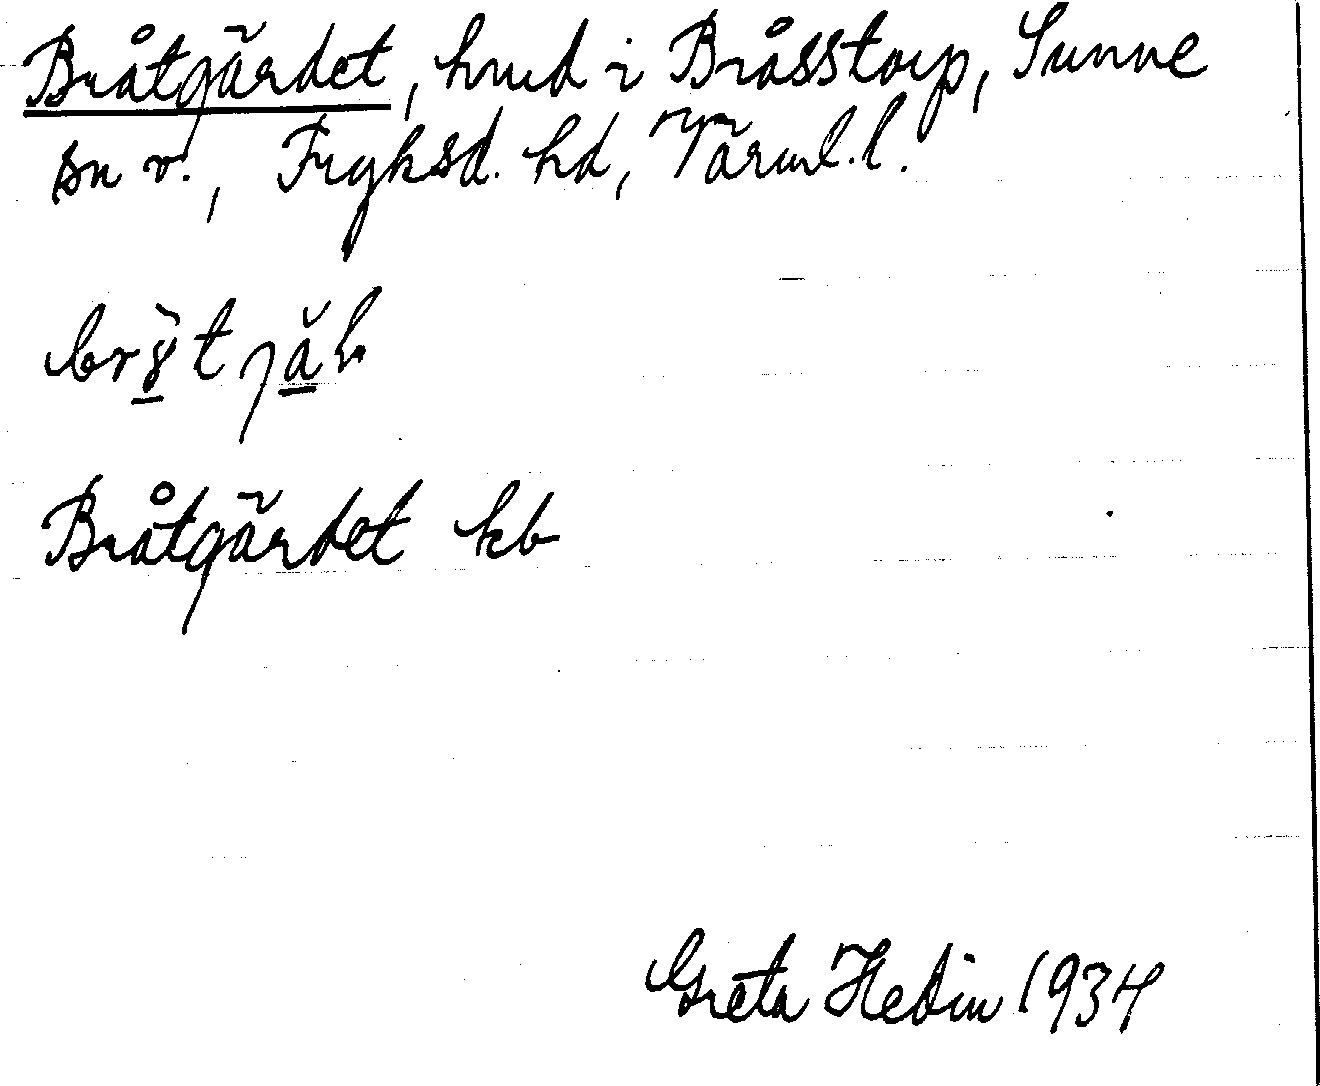 Bråtgärdet, hmd i Bråsstorp, Sunne
sn v., Fryksd. hd, Värml. l.
Bråtgärdet kb
Greta Hedin 1934